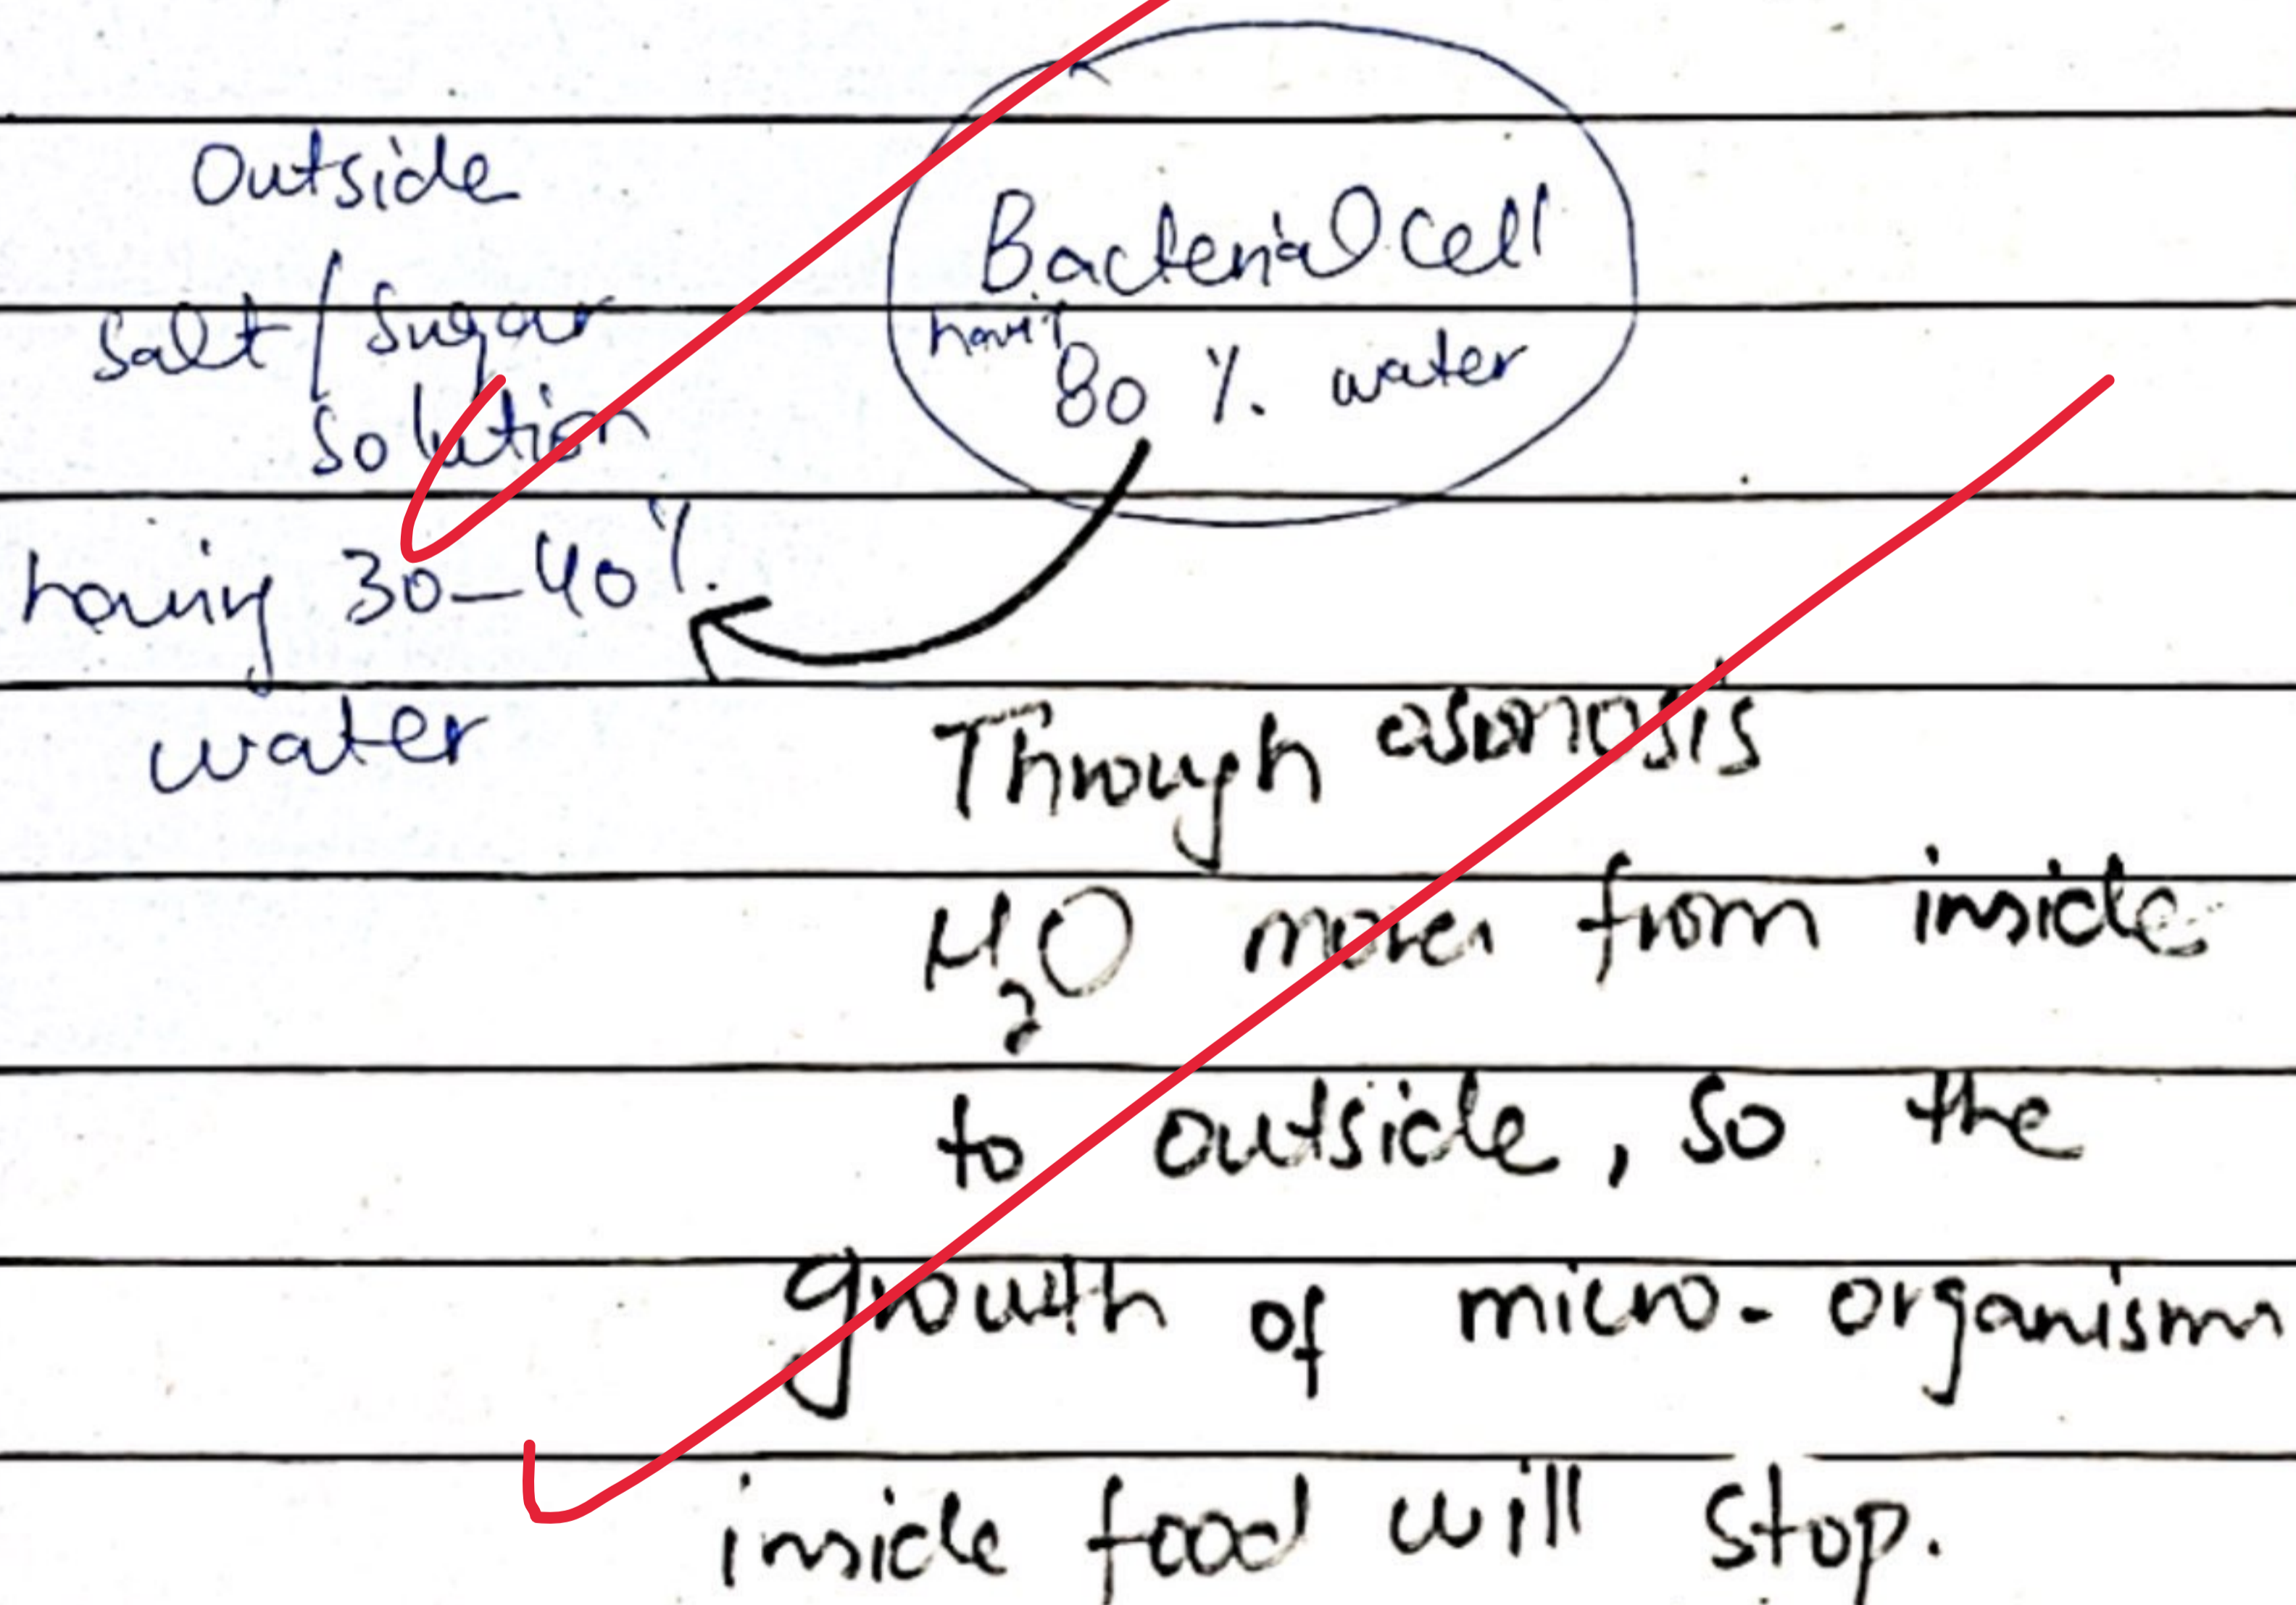 Outside
salt / sugar
solution
having 30-40%
water
Bacterial cell
80 % water
Through osmosis
H₂O moves from inside
to outside, so the
growth of micro-organisms
inside food will stop.